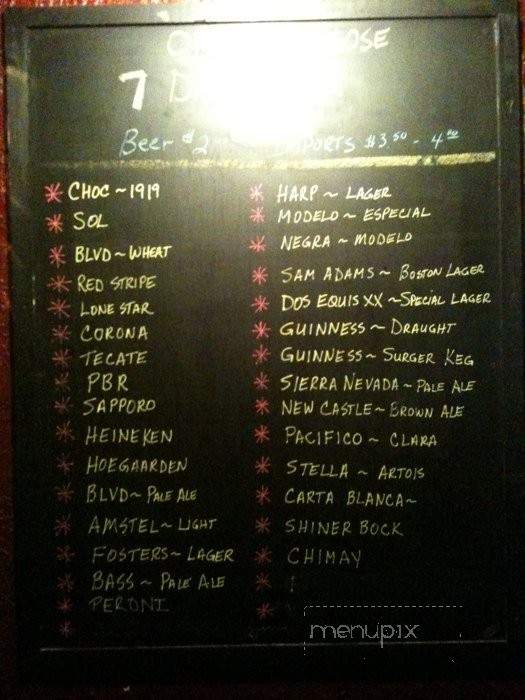 7
Beer $2
IMPORTS $3.50 - 4.00
* CHOC ~ 1919
* SOL
* BLVD ~ WHEAT
* RED STRIPE
* LONE STAR
* CORONA
* TECATE
* PBR
* SAPPORO
* HEINEKEN
* HOEGAARDEN
* BLVD ~ PALE ALE
* AMSTEL ~ LIGHT
* FOSTERS ~ LAGER
* BASS ~ PALE ALE
* PERONI
*
* HARP ~ LAGER
* MODELO ~ ESPECIAL
* NEGRA ~ MODELO
* SAM ADAMS ~ BOSTON LAGER
* DOS EQUIS XX ~ SPECIAL LAGER
* GUINNESS ~ DRAUGHT
* GUINNESS ~ SURGER KEG
* SIERRA NEVADA ~ PALE ALE
* NEW CASTLE ~ BROWN ALE
* PACIFICO ~ CLARA
* STELLA ~ ARTOIS
* CARTA BLANCA ~
* SHINER BOCK
* CHIMAY
*
*
menupix